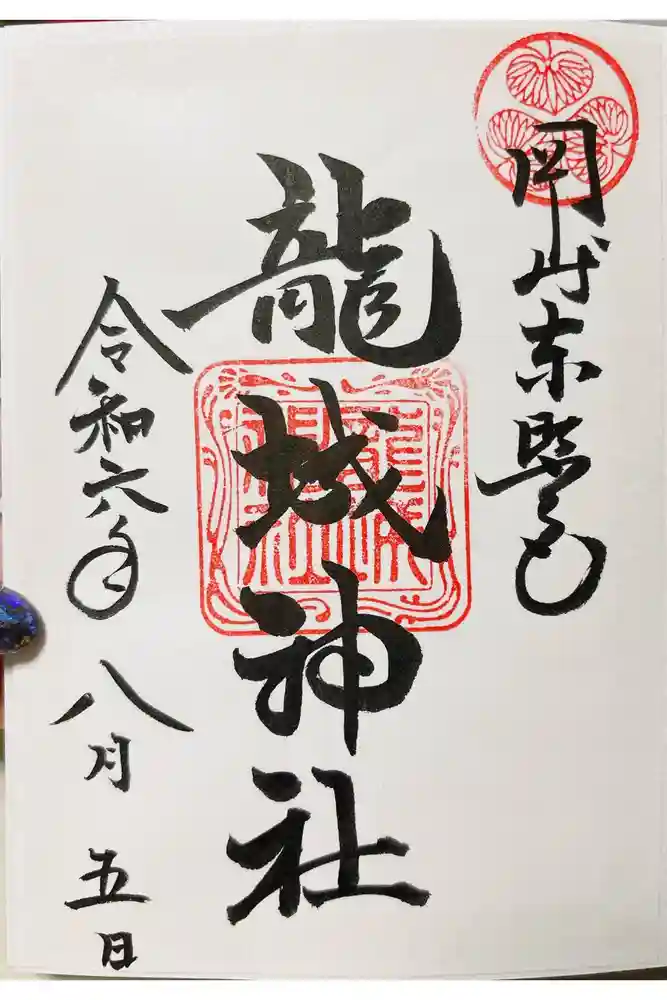 岡崎東照宮
龍城神社
令和六年 八月 五日